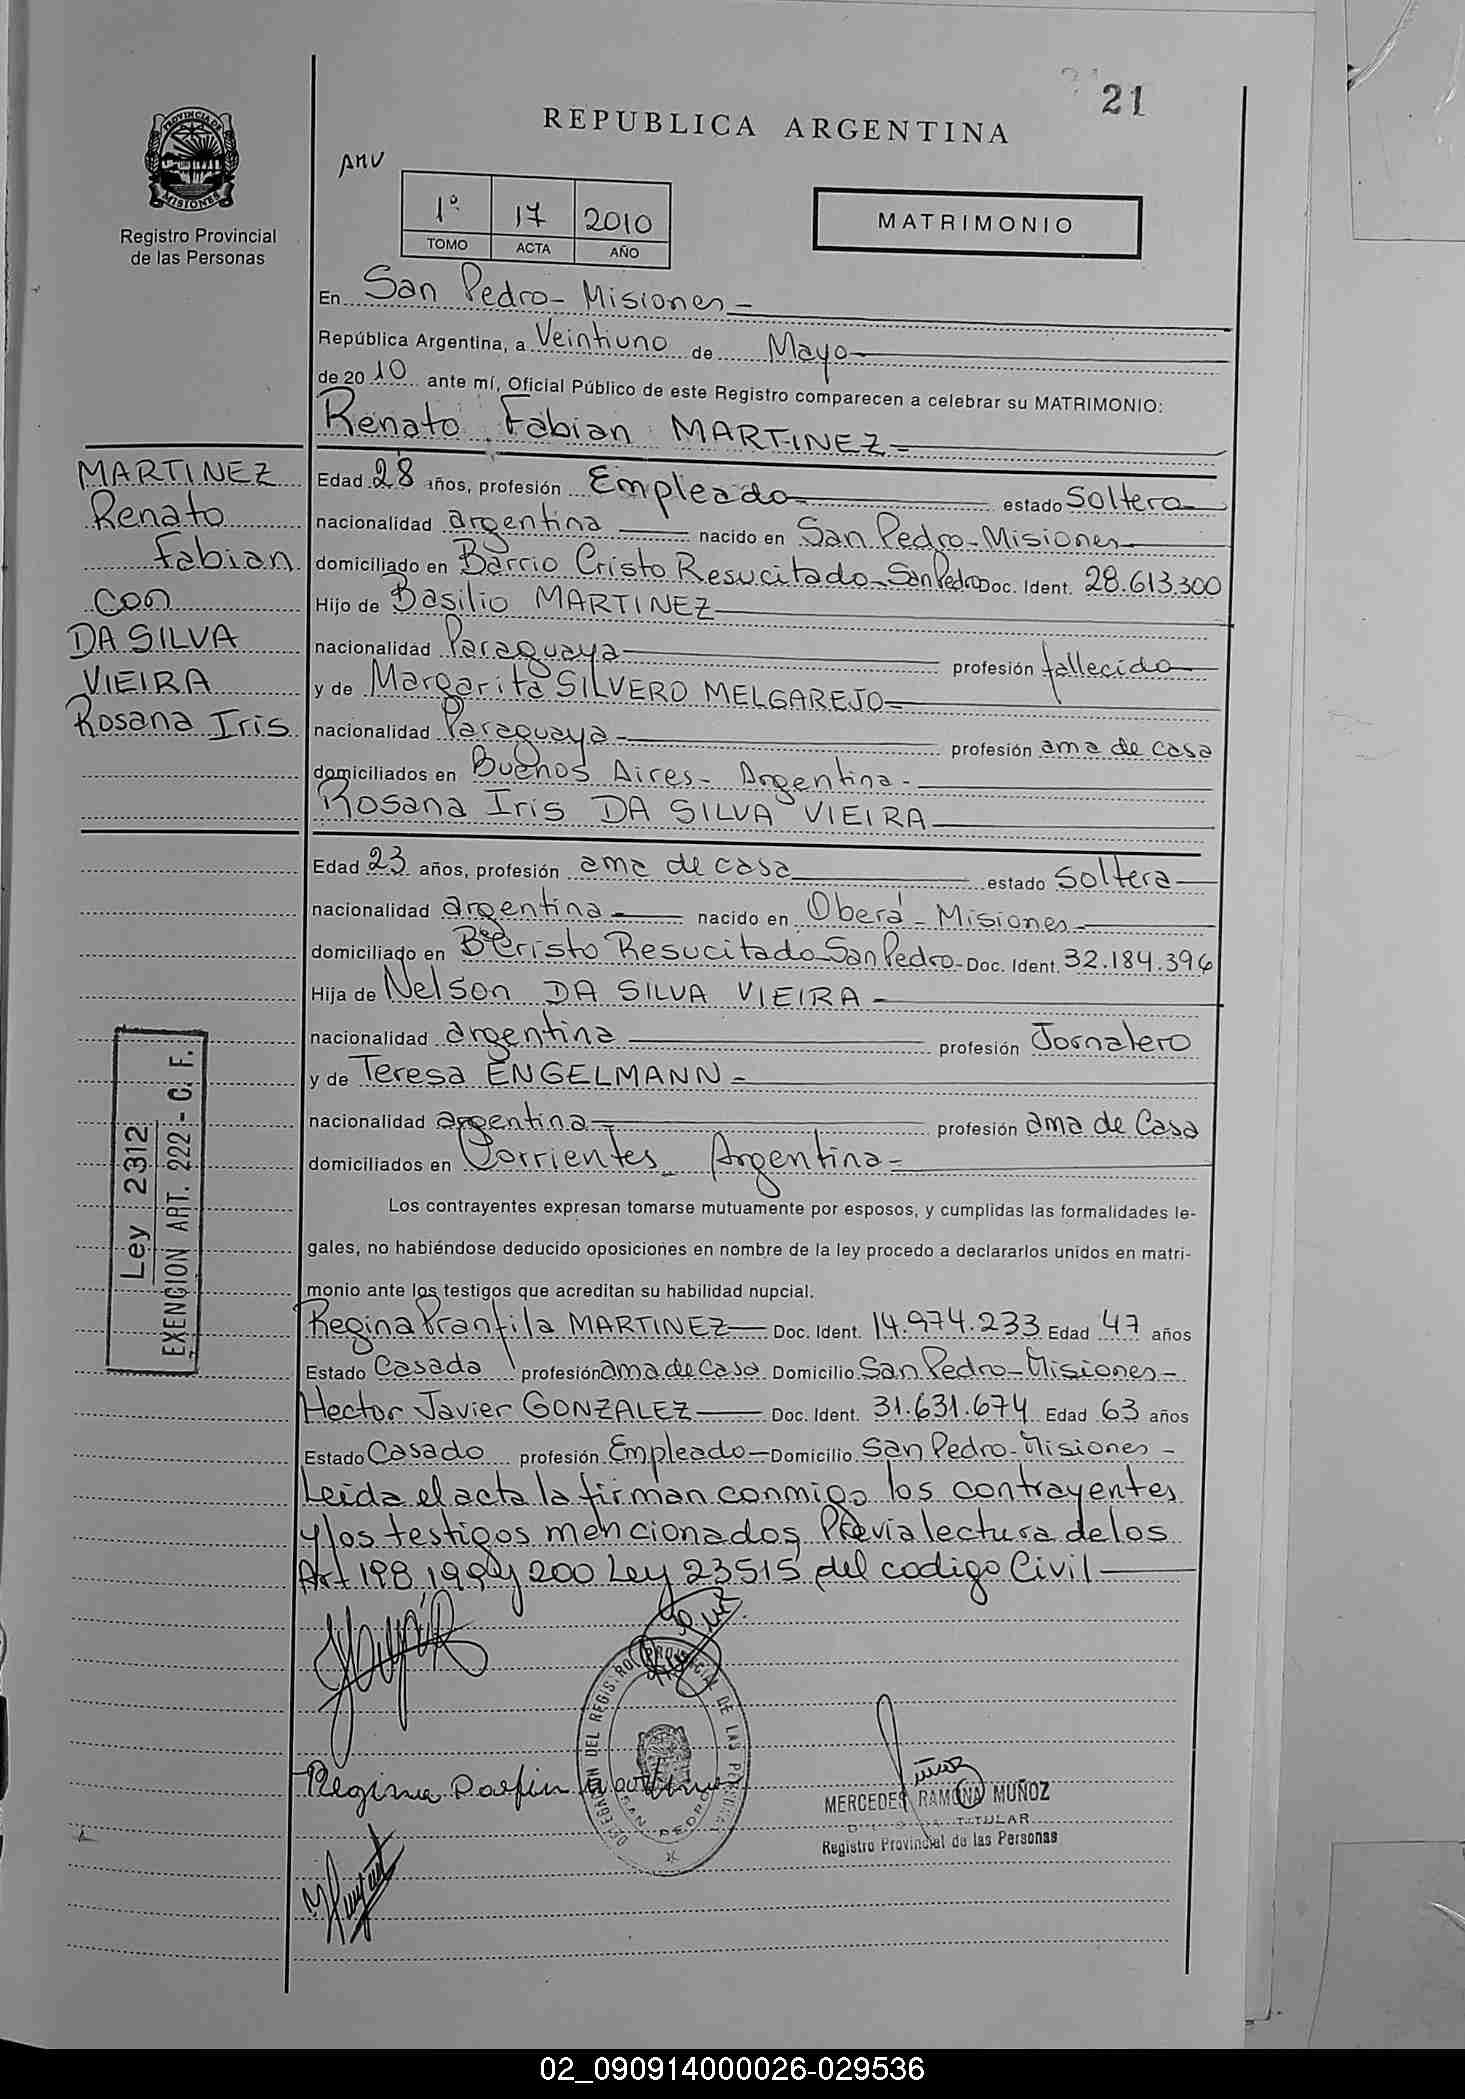 21
REPUBLICA ARGENTINA
PROVINCIA DE
MISIONES
Registro Provincial
de las Personas
AMV
1º 17 2010
TOMO ACTA AÑO
MATRIMONIO
En San Pedro - Misiones -
República Argentina, a Veintiuno de Mayo
de 2010 ante mí, Oficial Público de este Registro comparecen a celebrar su MATRIMONIO:
Renato Fabian MARTINEZ
MARTINEZ
Renato
Fabian
con
DA SILVA
VIEIRA
Rosana Iris
Edad 28 años, profesión Empleado estado Soltera
nacionalidad argentina nacido en San Pedro - Misiones
domiciliado en Barrio Cristo Resucitado - San Pedro Doc. Ident. 28.613.300
Hijo de Basilio MARTINEZ
nacionalidad Paraguaya profesión fallecido
y de Margarita SILVERO MELGAREJO
nacionalidad Paraguaya profesión ama de casa
domiciliados en Buenos Aires - Argentina -
Rosana Iris DA SILVA VIEIRA
Edad 23 años, profesión ama de casa estado Soltera
nacionalidad argentina nacido en Oberá - Misiones
domiciliado en Bº Cristo Resucitado San Pedro - Doc. Ident. 32.184.396
Hija de Nelson DA SILVA VIEIRA -
nacionalidad argentina profesión Jornalero
y de Teresa ENGELMANN -
nacionalidad argentina profesión ama de Casa
domiciliados en Corrientes Argentina -
Los contrayentes expresan tomarse mutuamente por esposos, y cumplidas las formalidades le-
gales, no habiéndose deducido oposiciones en nombre de la ley procedo a declararlos unidos en matri-
monio ante los testigos que acreditan su habilidad nupcial.
Ley 2312
EXENCION ART. 222 - C. F.
Regina MARTINEZ Doc. Ident. 14.974.233 Edad 47 años
Estado Casada profesión ama de Casa Domicilio San Pedro - Misiones -
Hector Javier GONZALEZ Doc. Ident. 31.631.674 Edad 63 años
Estado Casado profesión Empleado Domicilio San Pedro - Misiones -
Leida el acta la firman conmigo los contrayentes
y los testigos mencionados, Previa lectura de los
Art 198 199 y 200 Ley 23515 del codigo Civil
Regina
DELEGACION DEL REGISTRO PROVINCIAL DE LAS PERSONAS
SAN PEDRO
Muñoz
MERCEDES RAMONA MUÑOZ
TITULAR
Registro Provincial de las Personas
02_090914000026-029536